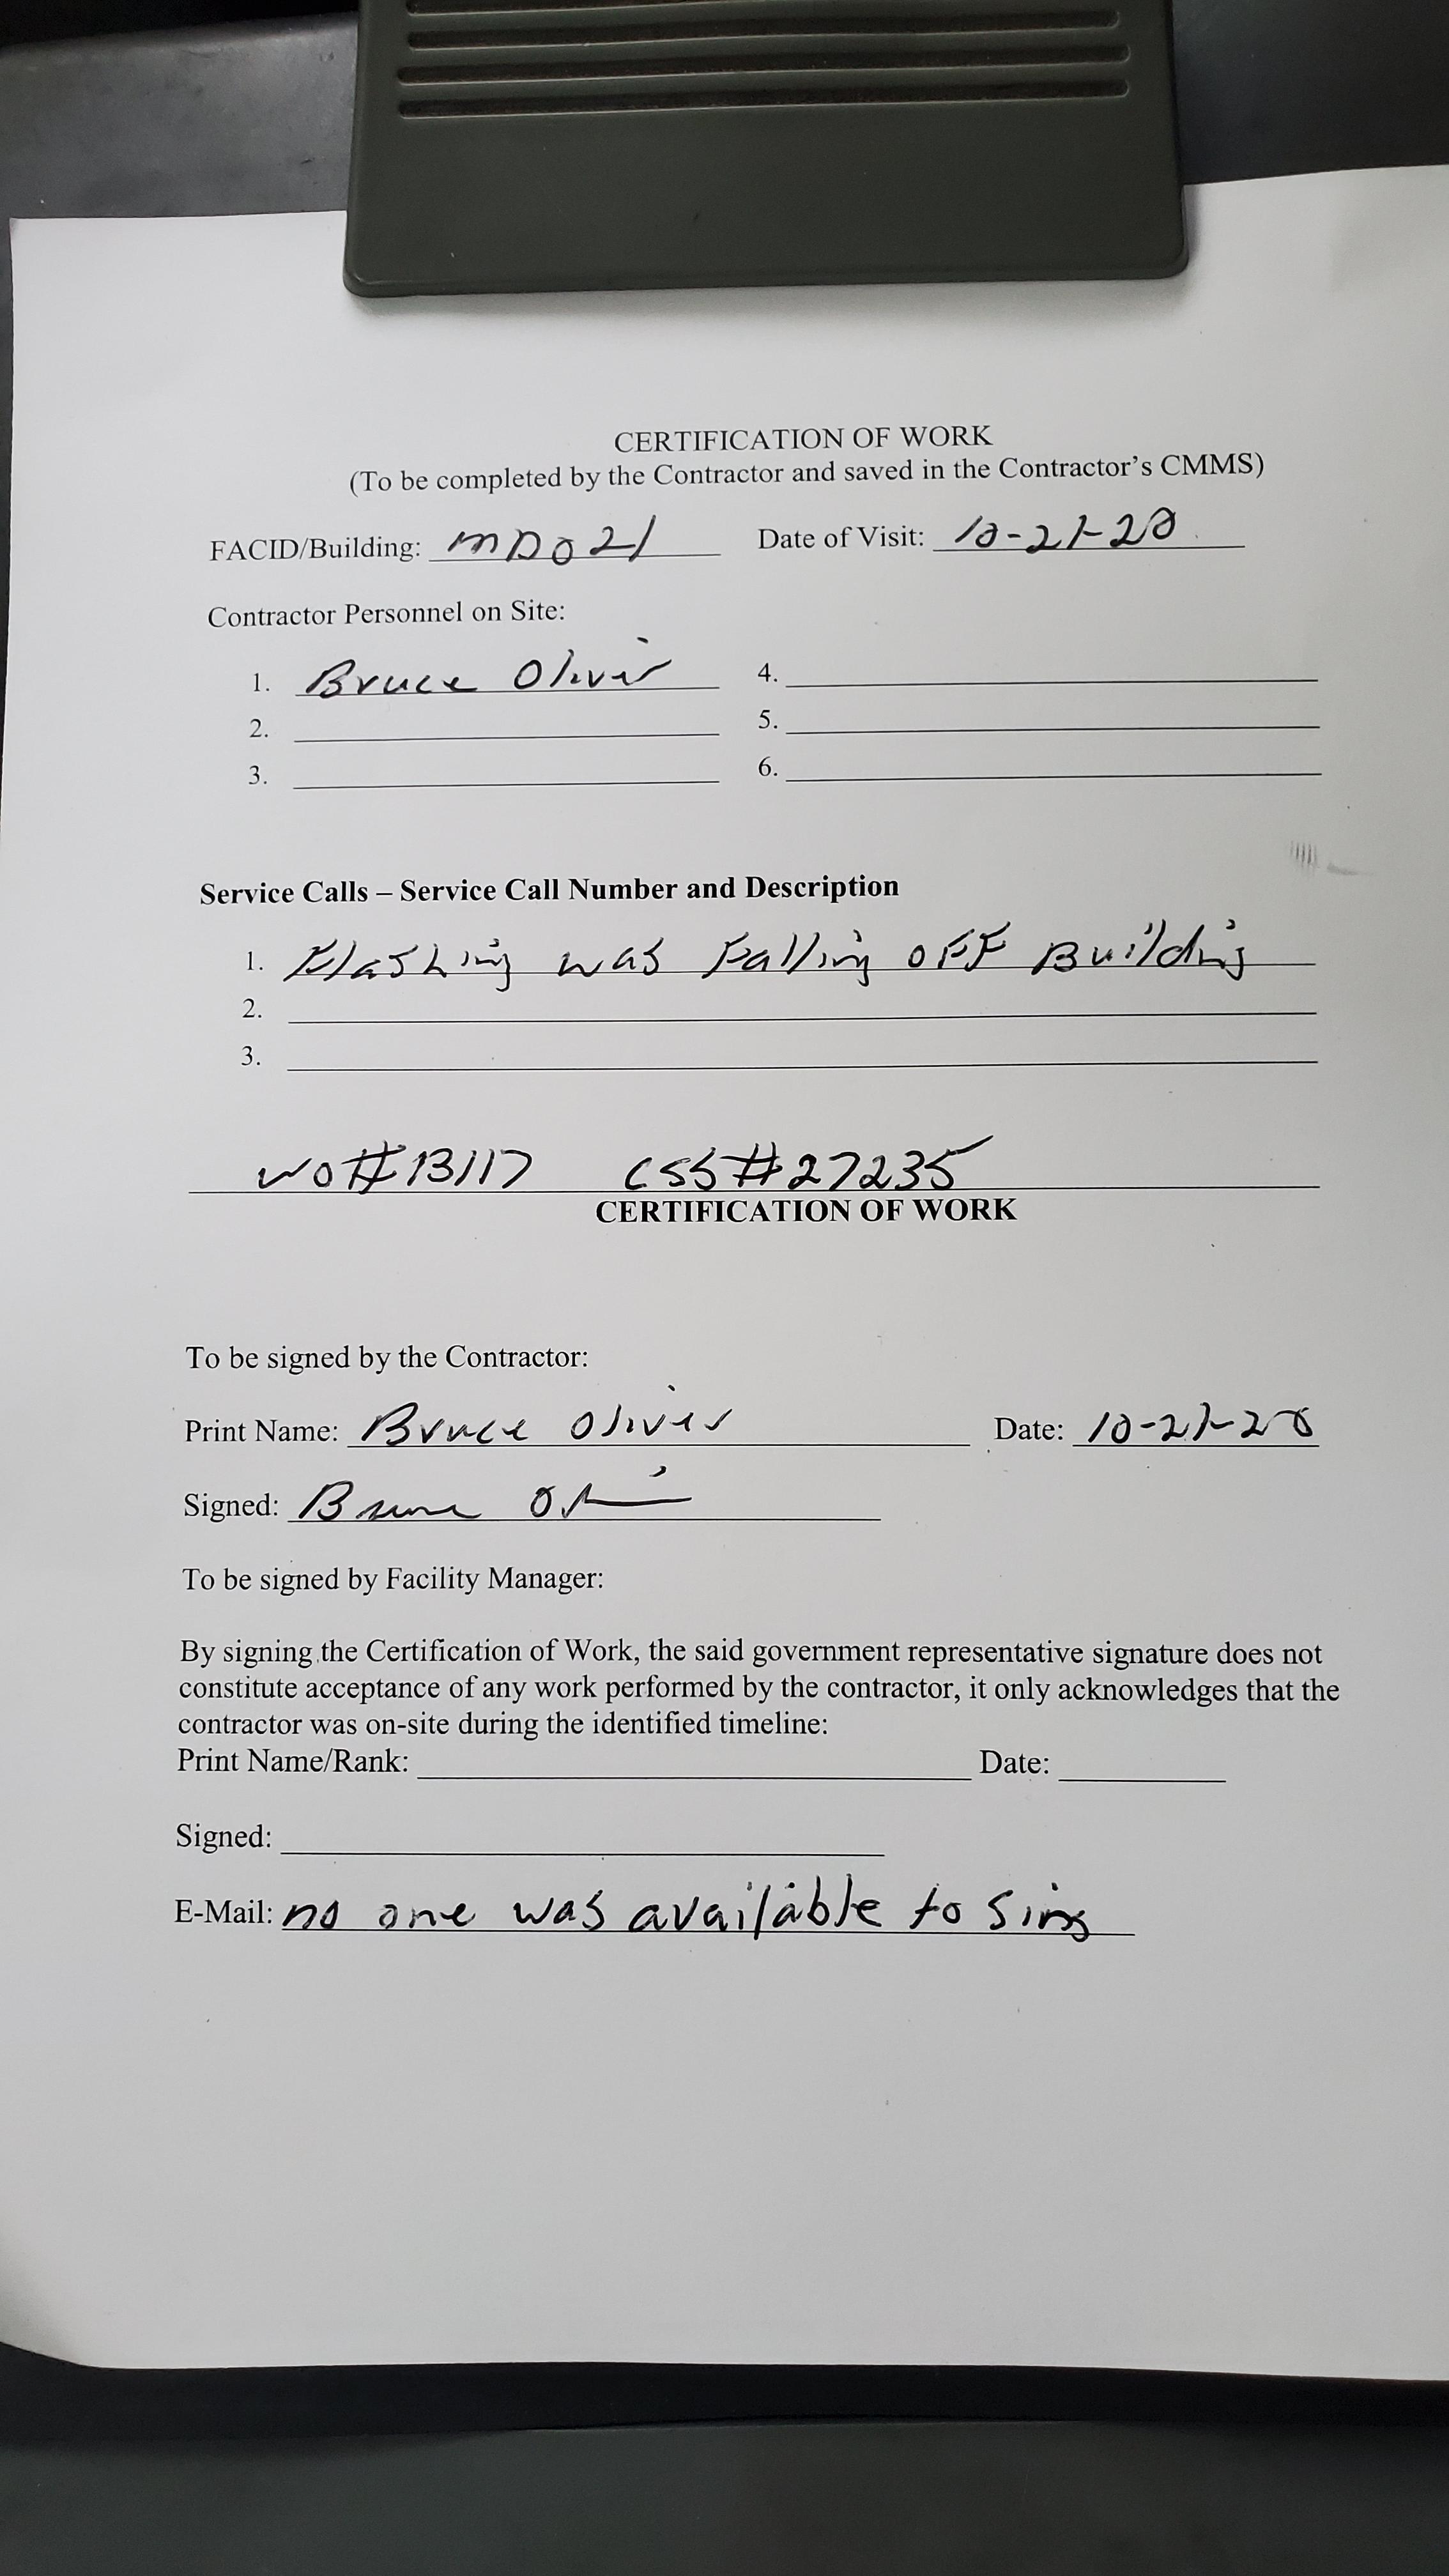 CERTIFICATION OF WORK
(To be completed by the Contractor and saved in the Contractor's CMMS)
FACID/Building: MD021 Date of Visit: 10-21-20
Contractor Personnel on Site:
1. Bruce Oliver 4.
2. 5.
3. 6.
Service Calls – Service Call Number and Description
1. Flashing was Falling off Building
2.
3.
WO#13117 CSS#27235
CERTIFICATION OF WORK
To be signed by the Contractor:
Print Name: Bruce Oliver Date: 10-21-20
Signed: Bruce Oliver
To be signed by Facility Manager:
By signing the Certification of Work, the said government representative signature does not
constitute acceptance of any work performed by the contractor, it only acknowledges that the
contractor was on-site during the identified timeline:
Print Name/Rank: Date:
Signed:
E-Mail: no one was available to sing